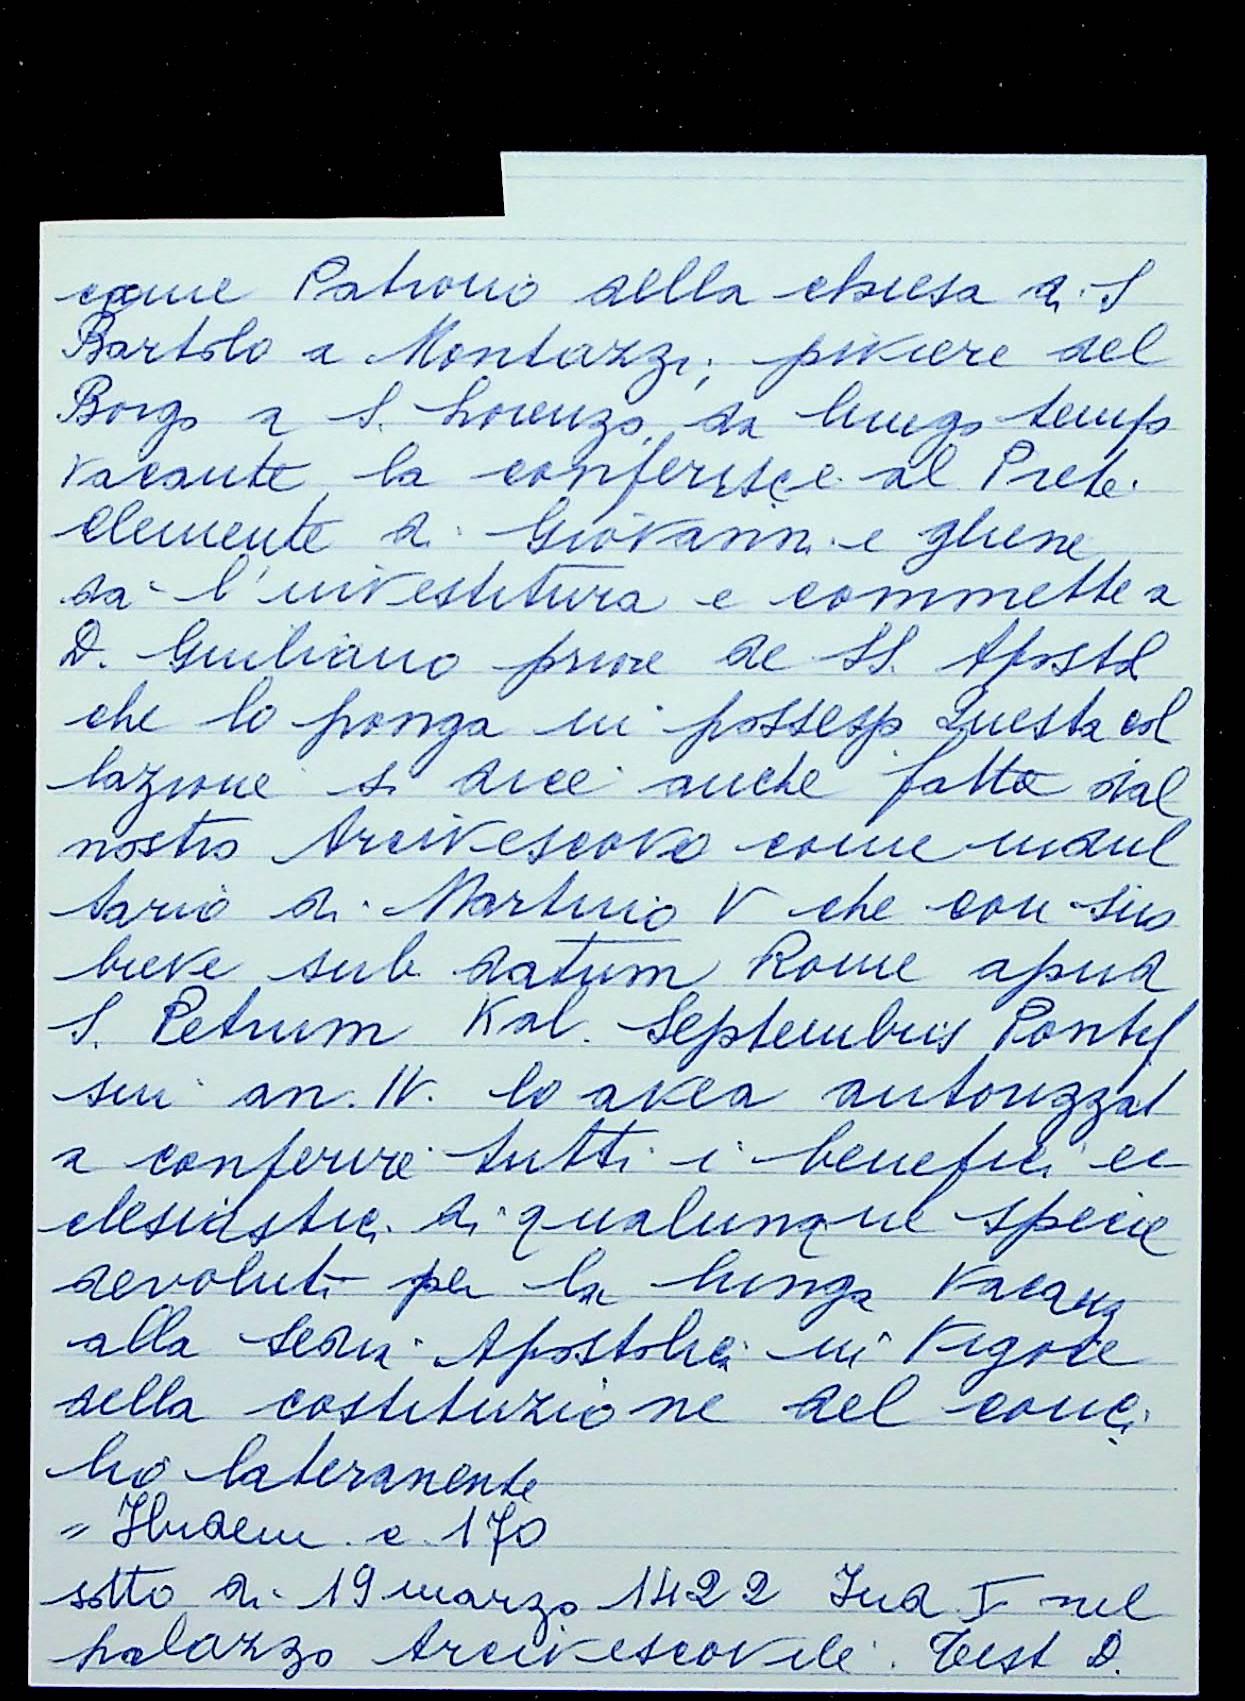 come Patrono della chiesa di S
Bartolo a Montazzi, piviere del
Borgo a S. Lorenzo, da lungo tempo
vacante, la conferisce al Prete
Clemente di Giovanni e gliene
da l'investitura e commette a
D. Giuliano priore de SS. Apostol
che lo ponga in possesso. Questa col
lazione si dice anche fatta dal
nostro Arcivescovo come indul
tario di Martino V che con suo
breve sub datum Rome apud
S. Petrum Kal. Septembris Pontif
sui an. IV. lo avea autorizzat
a conferire tutti i benefici ec
clesiastici di qualunque specie
devoluti per la lunga vacanza
alla Sedia Apostolica in vigore
della costituzione del conci
lio lateranente
= Ibidem c. 170
sotto di 19 marzo 1422 Ind V nel
palazzo Arcivescovile. Test D.